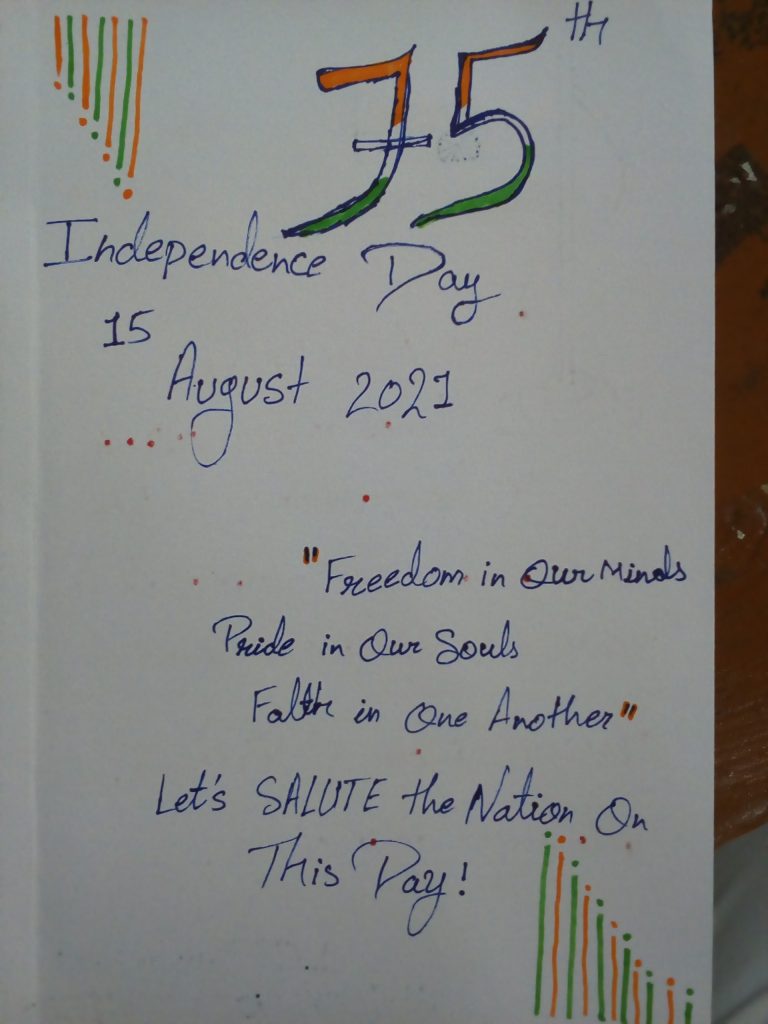 75th
Independence Day
15
August 2021
"Freedom in Our Minds
Pride in Our Souls
Faith in One Another"
Let's SALUTE the Nation On
This Day!